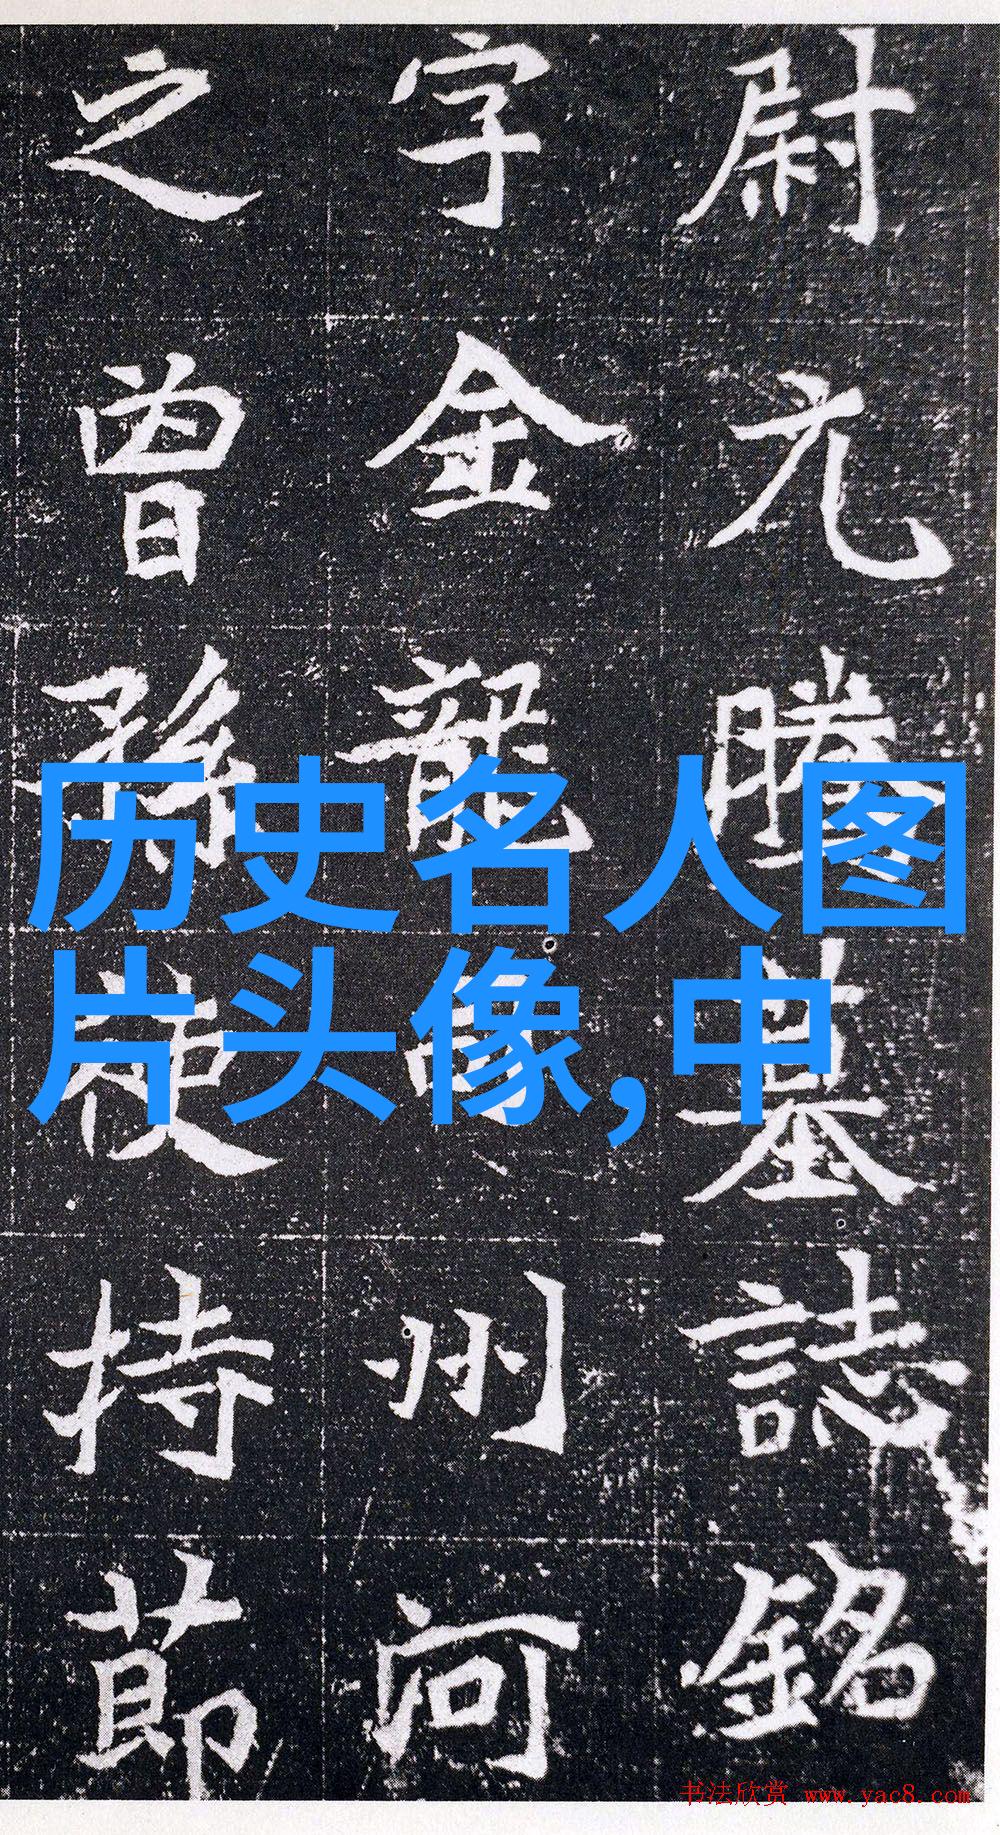 尉元騰墓誌銘
字金龍司州河
之曾孫使持節
历史名人图
片头像,中
书法欣赏 www.yac8.com